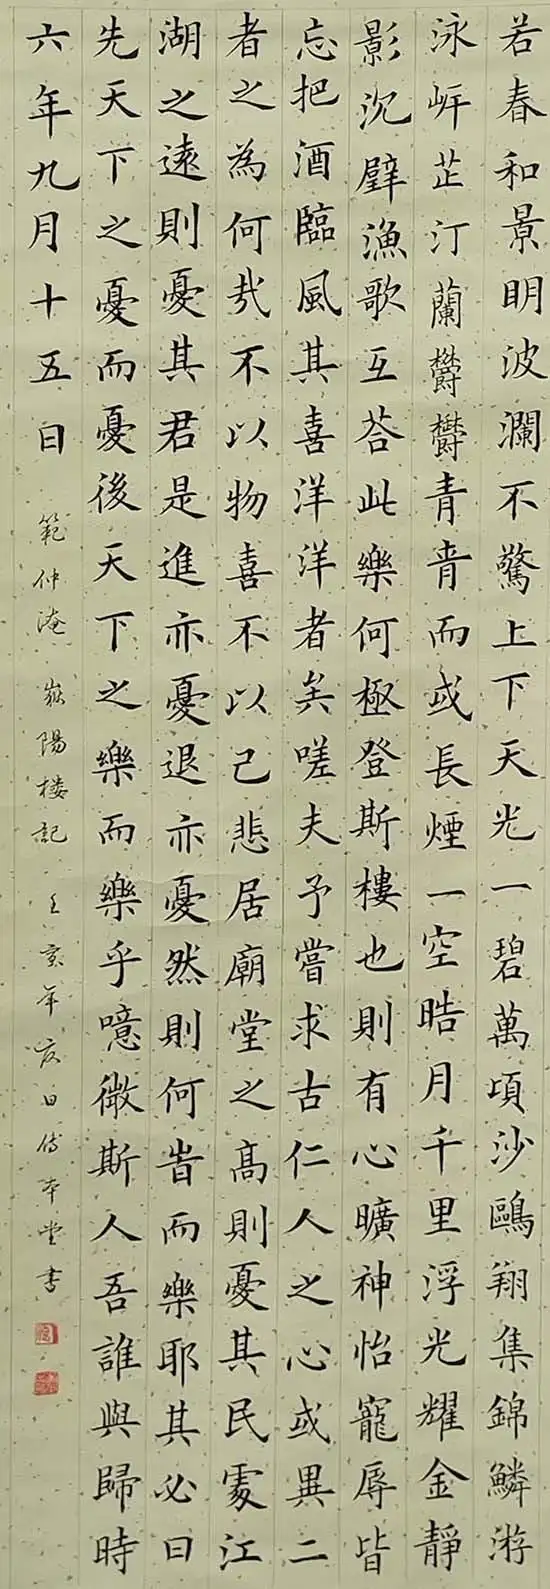 若春和景明波瀾不驚上下天光一碧萬頃沙鷗翔集錦鱗游
泳岸芷汀蘭欝欝青青而或長煙一空皓月千里浮光耀金靜
影沉璧漁歌互荅此樂何極登斯樓也則有心曠神怡寵辱皆
忘把酒臨風其喜洋洋者矣嗟夫予嘗求古仁人之心或異二
者之為何哉不以物喜不以己悲居廟堂之高則憂其民處江
湖之遠則憂其君是進亦憂退亦憂然則何旹而樂耶其必曰
先天下之憂而憂後天下之樂而樂乎噫微斯人吾誰與歸時
六年九月十五日 範仲淹 嶽陽楼記 年 日 本堂書